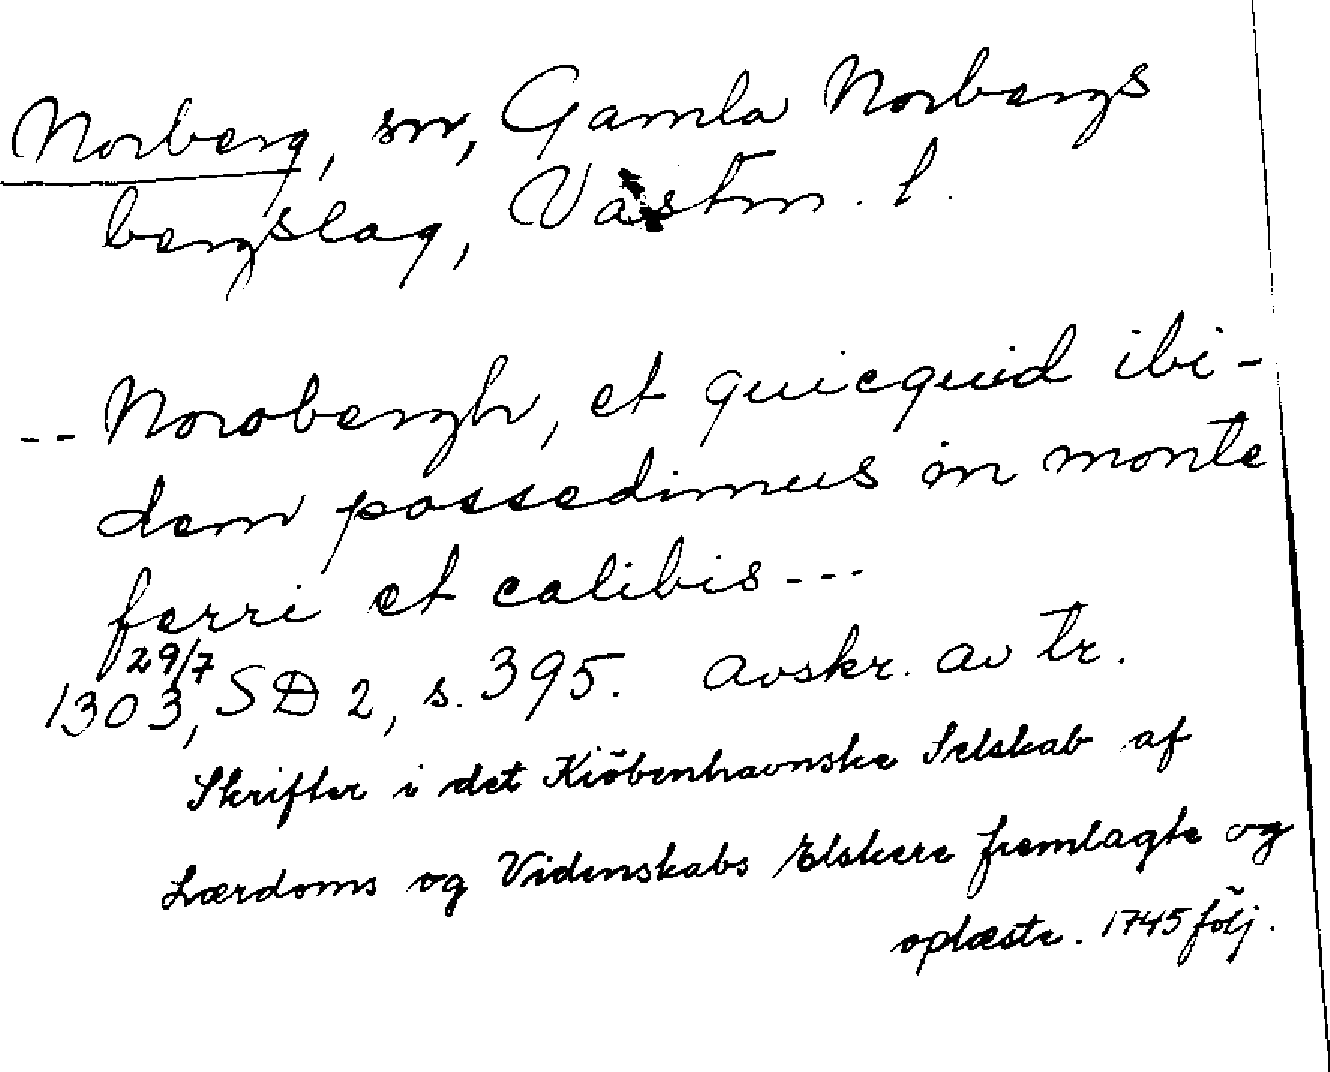 Norberg, sn, Gamla Norbergs
bergslag, Västm. l.
-- Norobergh, et quicquid ibi-
dem possedimus in monte
ferri et calibis ---
29/7
1303, SD 2, s. 395. Avskr. av tr.
Skrifter i det Kiöbenhavnske Selskab af
Lærdoms og Videnskabs Elskere fremlagte og
oplæste. 1745 följ.